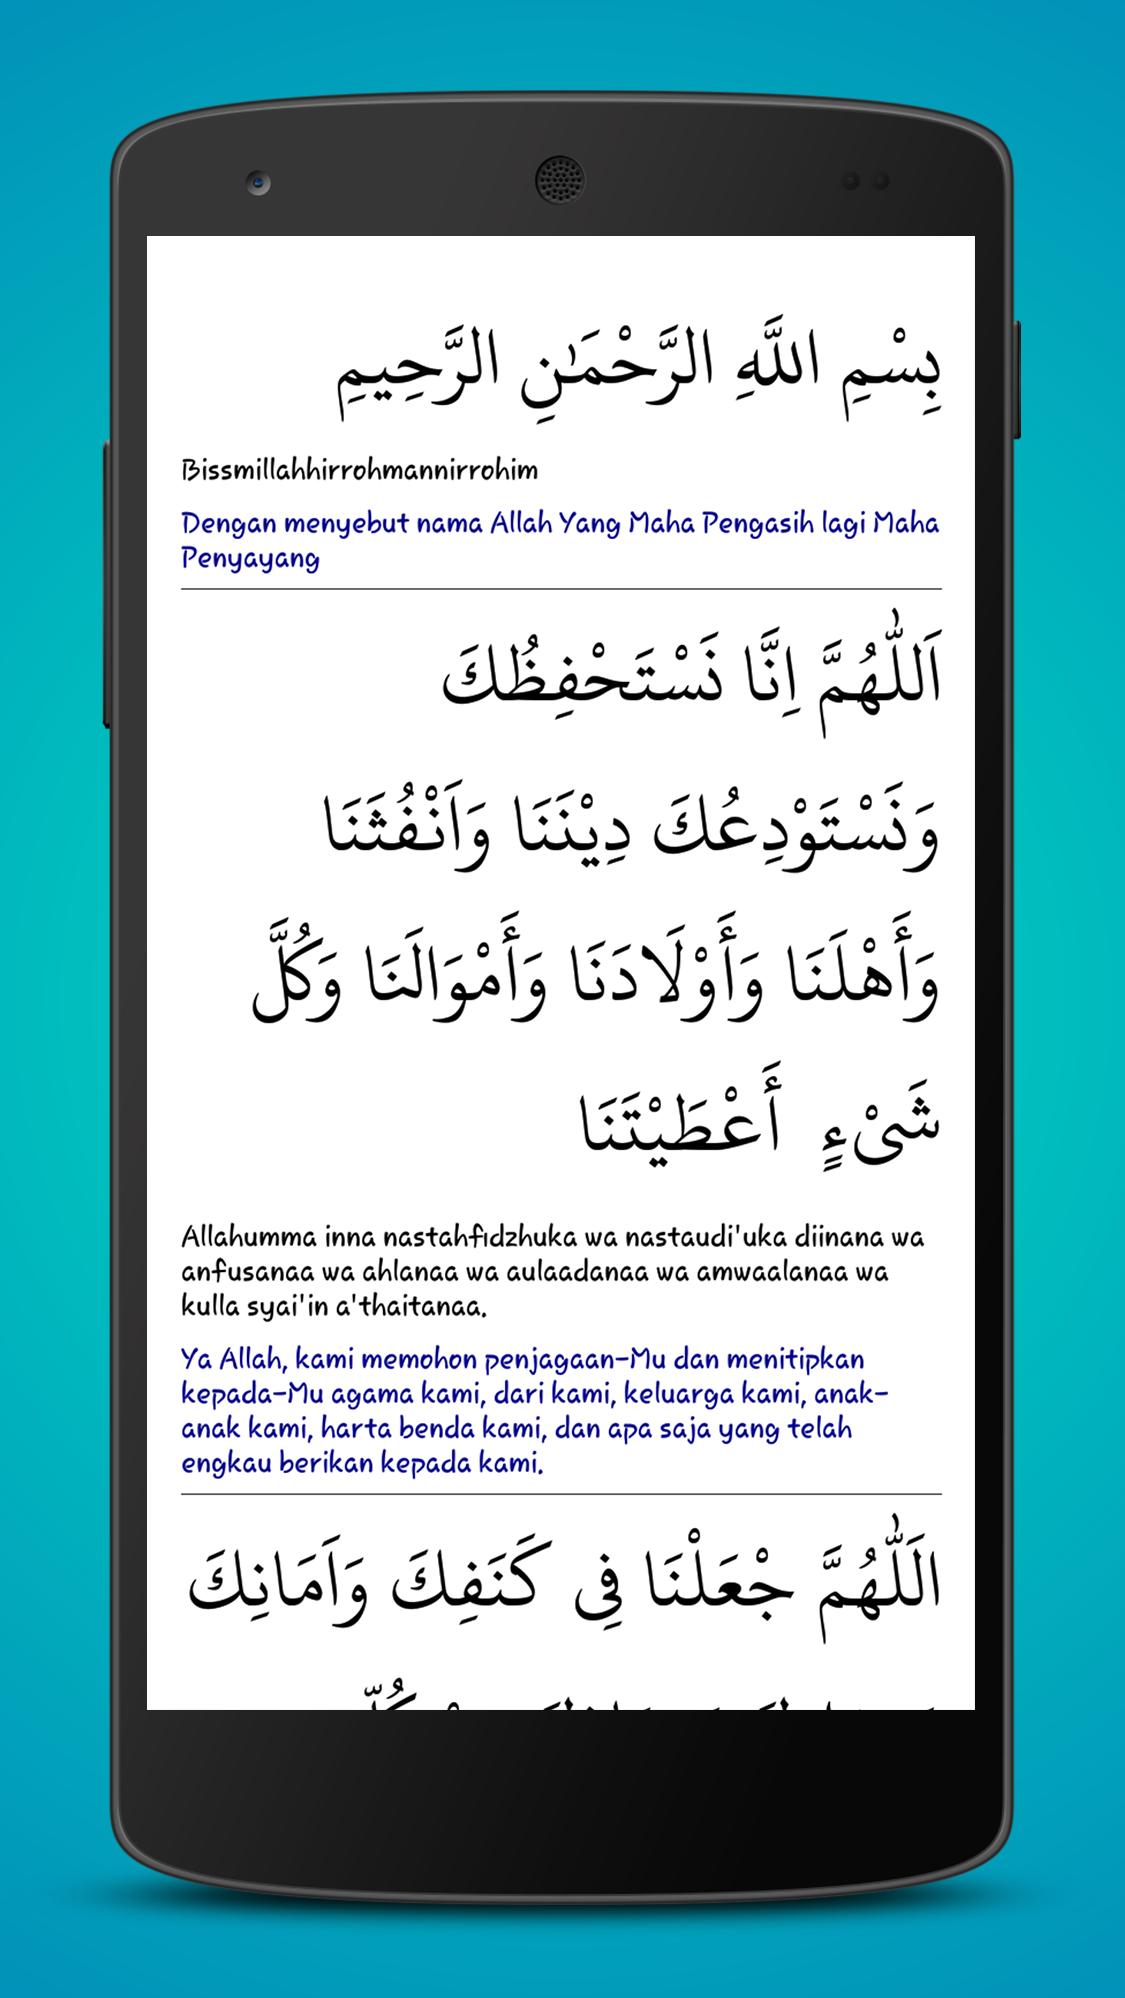 بِسْمِ اللَّهِ الرَّحْمَٰنِ الرَّحِيمِ
Bissmillahhirrohmannirrohim
Dengan menyebut nama Allah Yang Maha Pengasih lagi Maha
Penyayang
اَللّٰهُمَّ اِنَّا نَسْتَحْفِظُكَ
وَنَسْتَوْدِعُكَ دِيْنَنَا وَاَنْفُثَنَا
وَأَهْلَنَا وَأَوْلَادَنَا وَأَمْوَالَنَا وَكُلَّ
شَىْءٍ أَعْطَيْتَنَا
Allahumma inna nastahfidzhuka wa nastaudi'uka diinana wa
anfusanaa wa ahlanaa wa aulaadanaa wa amwaalanaa wa
kulla syai'in a'thaitanaa.
Ya Allah, kami memohon penjagaan-Mu dan menitipkan
kepada-Mu agama kami, dari kami, keluarga kami, anak-
anak kami, harta benda kami, dan apa saja yang telah
engkau berikan kepada kami.
الَلّٰهُمَّ جْعَلْنَا فِى كَنَفِكَ وَاَمَانِكَ